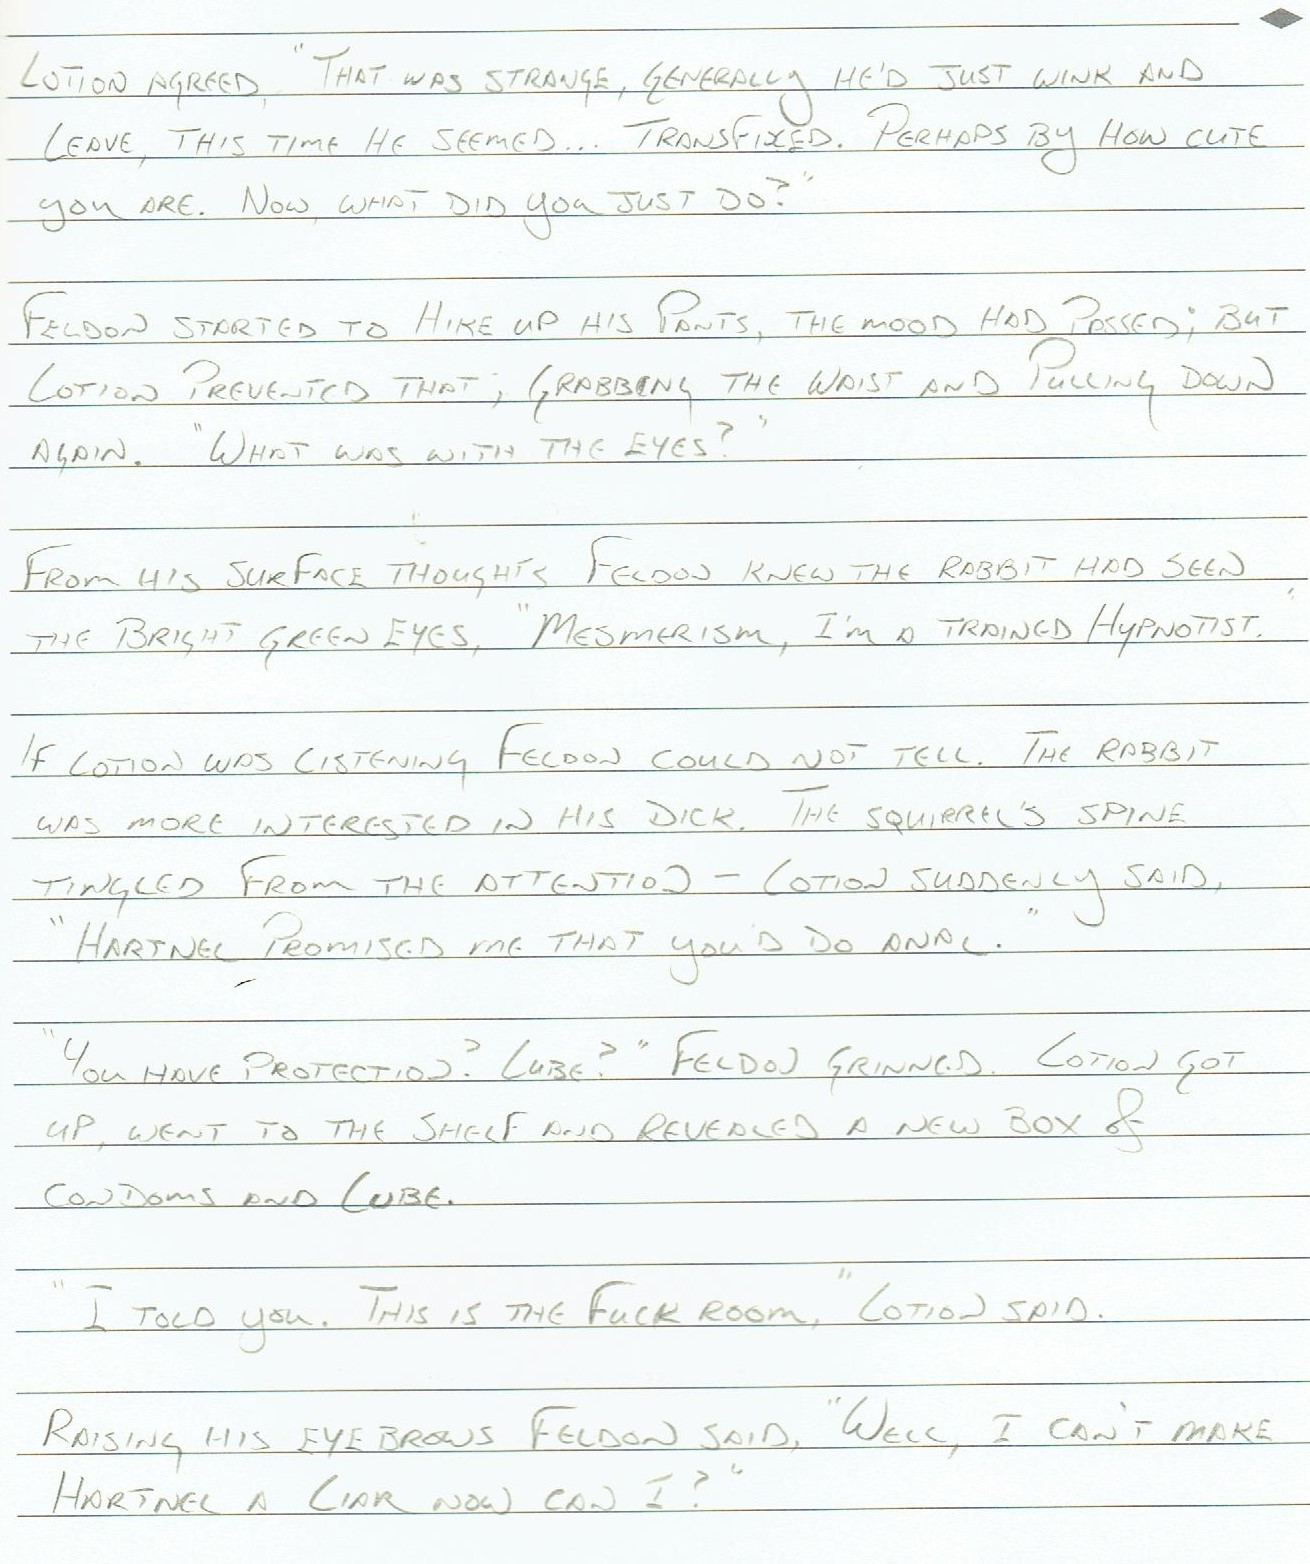 Lotion agreed, "That was strange, generally he'd just wink and
leave, this time he seemed... transfixed. Perhaps by how cute
you are. Now, what did you just do?"
Feldon started to hike up his pants, the mood had passed; but
Lotion prevented that; grabbing the waist and pulling down
again. "What was with the eyes?"
From his surface thoughts Feldon knew the rabbit had seen
the bright green eyes, "Mesmerism, I'm a trained hypnotist."
If Lotion was listening Feldon could not tell. The rabbit
was more interested in his dick. The squirrel's spine
tingled from the attention - Lotion suddenly said,
"Hartnel promised me that you'd do anal."
"You have protection? Lube?" Feldon grinned. Lotion got
up, went to the shelf and revealed a new box of
condoms and lube.
"I told you. This is the fuck room," Lotion said.
Raising his eyebrows Feldon said, "Well, I can't make
Hartnel a liar now can I?"